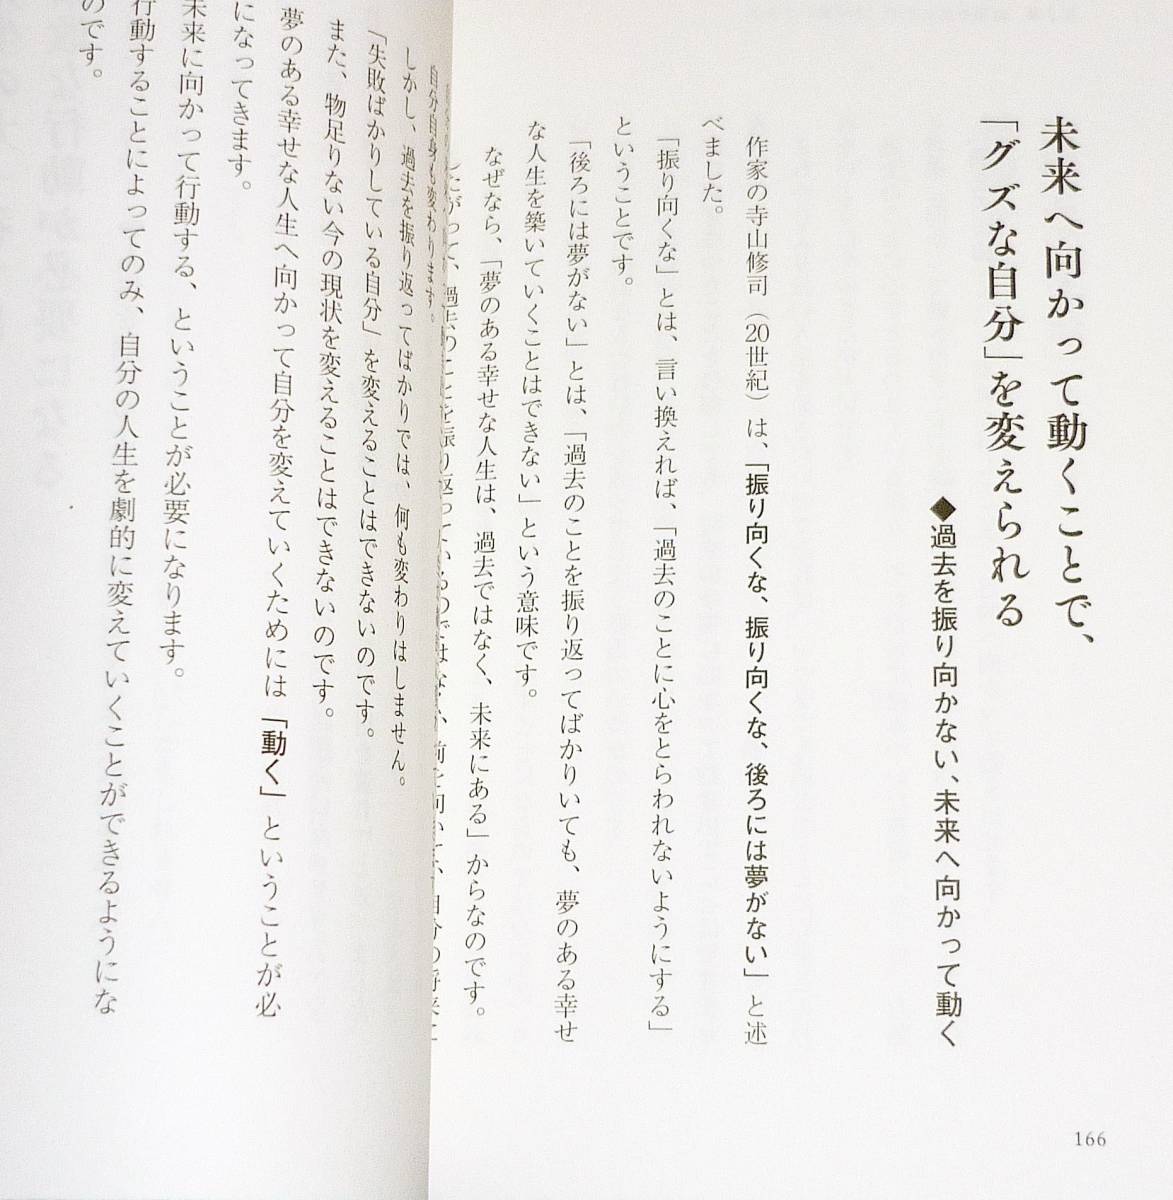 未来へ向かって動くことで、
「グズな自分」を変えられる
◆過去を振り向かない、未来へ向かって動く
作家の寺山修司（20世紀）は、「振り向くな、振り向くな、後ろには夢がない」と述
べました。
「振り向くな」とは、言い換えれば、「過去のことに心をとらわれないようにする」
ということです。
「後ろには夢がない」とは、「過去のことを振り返ってばかりいても、夢のある幸せ
な人生を築いていくことはできない」という意味です。
なぜなら、「夢のある幸せな人生は、過去ではなく、未来にある」からなのです。
したがって、過去のことを振り返っているのではなく、前を向いて、自分の将来に
166
自分自身も変わります。
しかし、過去を振り返ってばかりでは、何も変わりはしません。
「失敗ばかりしている自分」を変えることはできないのです。
また、物足りない今の現状を変えることはできないのです。
夢のある幸せな人生へ向かって自分を変えていくためには「動く」ということが必
になってきます。
未来に向かって行動する、ということが必要になります。
行動することによってのみ、自分の人生を劇的に変えていくことができるようにな
のです。